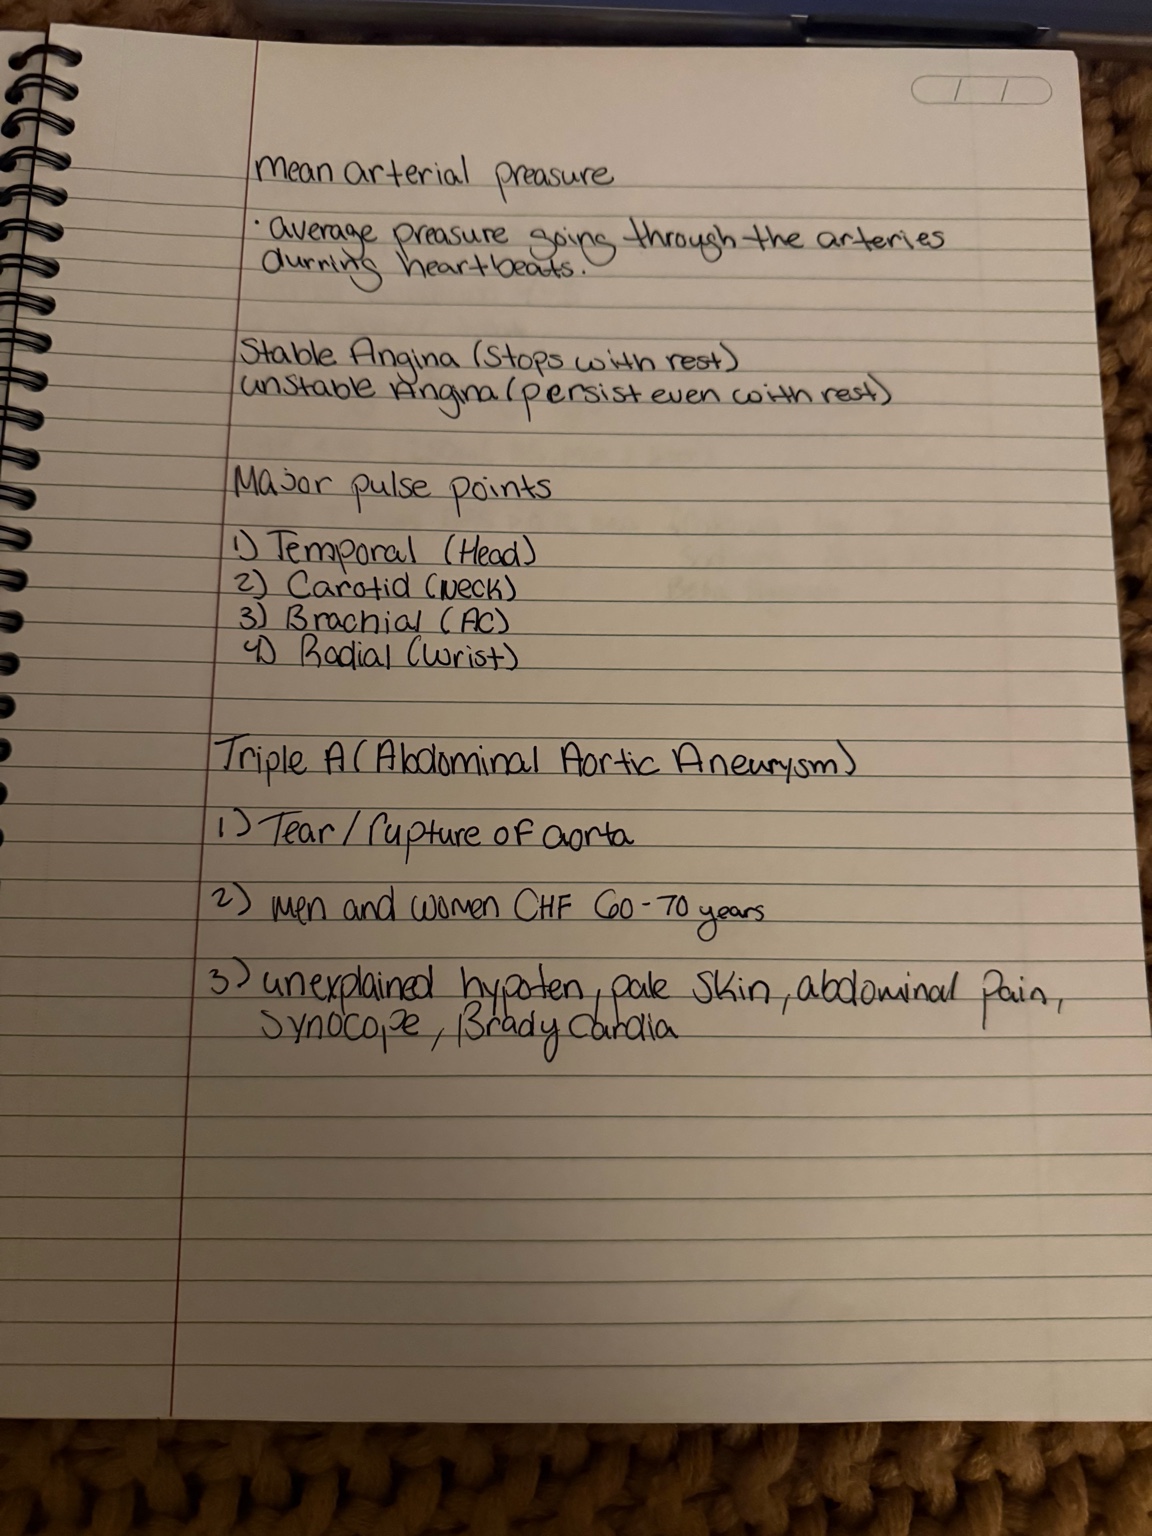 mean arterial preasure
· average preasure going through the arteries
durring heartbeats.
Stable Angina (Stops with rest)
unstable Angina (persist even with rest)
Major pulse points
1) Temporal (Head)
2) Carotid (Neck)
3) Brachial (AC)
4) Radial (Wrist)
Triple A (Abdominal Aortic Aneurysm)
1) Tear/rupture of aorta
2) men and women CHF 60-70 years
3) unexplained hypoten, pale skin, abdominal pain,
Synocope, Brady Cardia